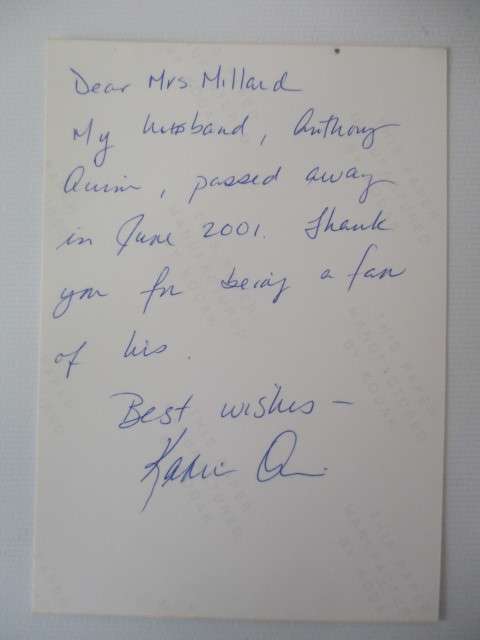 Dear Mrs Millard
My husband, Anthony
Quinn, passed away
in June 2001. Thank
you for being a fan
of his.
Best wishes —